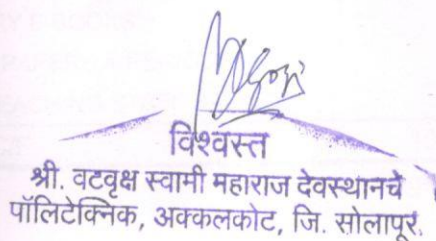 विश्वस्त
श्री. वटवृक्ष स्वामी महाराज देवस्थानचे
पॉलिटेक्निक, अक्कलकोट, जि. सोलापूर.